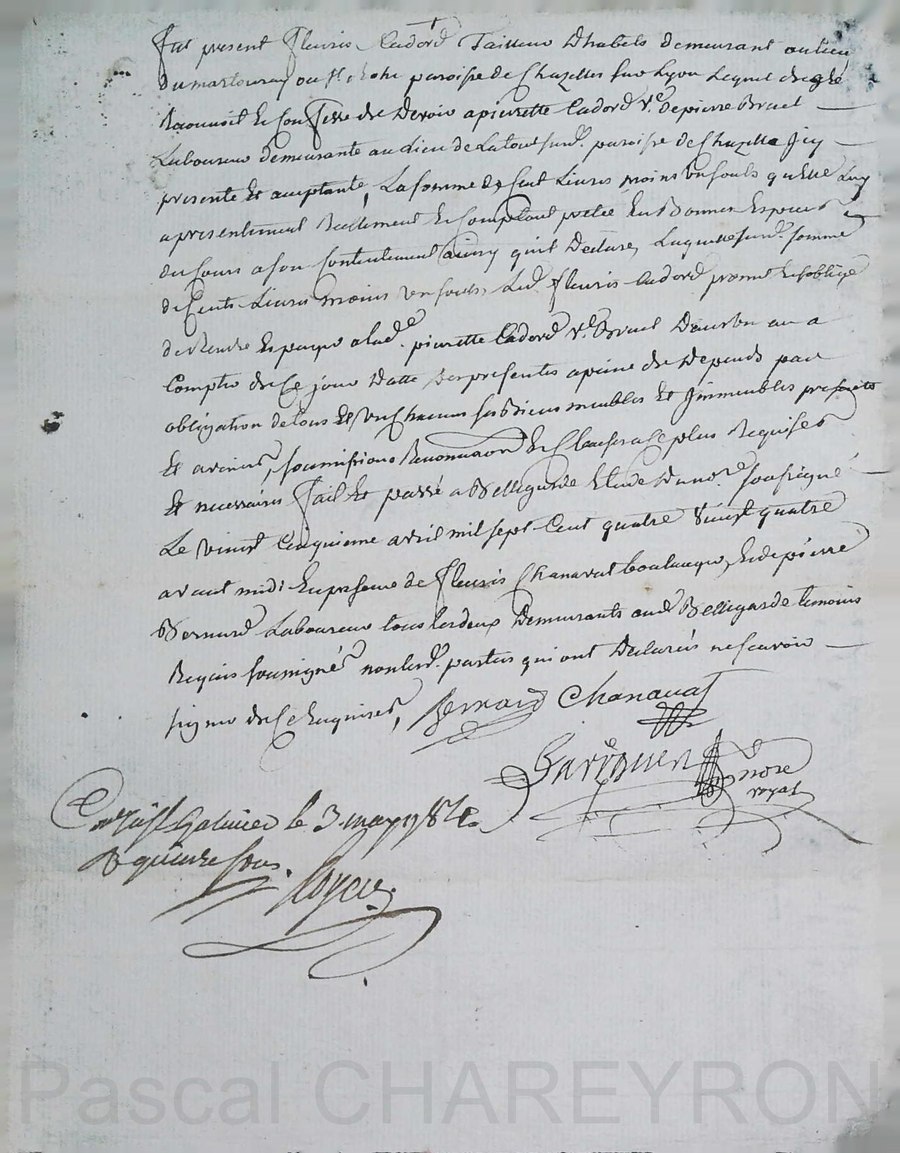 fut present fleuris Cadord Tailleur Dhabits demeurant au lieu
du martouray paroisse de Chazelles sur Lyon Lequel de gré
Reconnoit Et Confesse de Devoir a pierrette Cadord Ve. de pierre Bruel
Laboureur demeurante au Lieu de Latour susd. paroisse de Chazelle Icy
presente Et acceptante, La somme de Cent Livres moins un souls quelle Luy
a presentement Reellement Et Comptant pretée En Bonnes Especes
du Cours a son Contentement ainsy quil Declare, Laquelle susd. somme
de Cents Livres moins un souls, Led. fleuris Cadord promet Et soblige
de Rendre Et payer a lad. pierrette Cadord Ve. Bruel Dans un an a
Compter de Ce jour Datte Des presentes a peine de Depends par
obligation de tous Et un Chacuns ses Biens meubles Et Immeubles presents
Et avenirs, soumissions Renonciaons Et Clauses Le plus Requises
Et necessaires fait Et passé a Bellegarde Etude Du nore. soussigné
Le vingt Cinquieme avril mil sept Cent quatre vingt quatre
avant midi En presence de fleuris Chanavat boulanger, Et de pierre
Bernard Laboureur tous Les deux Demeurants aud. Bellegarde temoins
Requis soussignés non lesd. parties qui ont Declarés ne scavoir
signer de Ce Enquises,
Bernard Chanavat
nore
royal
Galmier le 3 may 1784
Rs quinze sous.
Pascal CHAREYRON